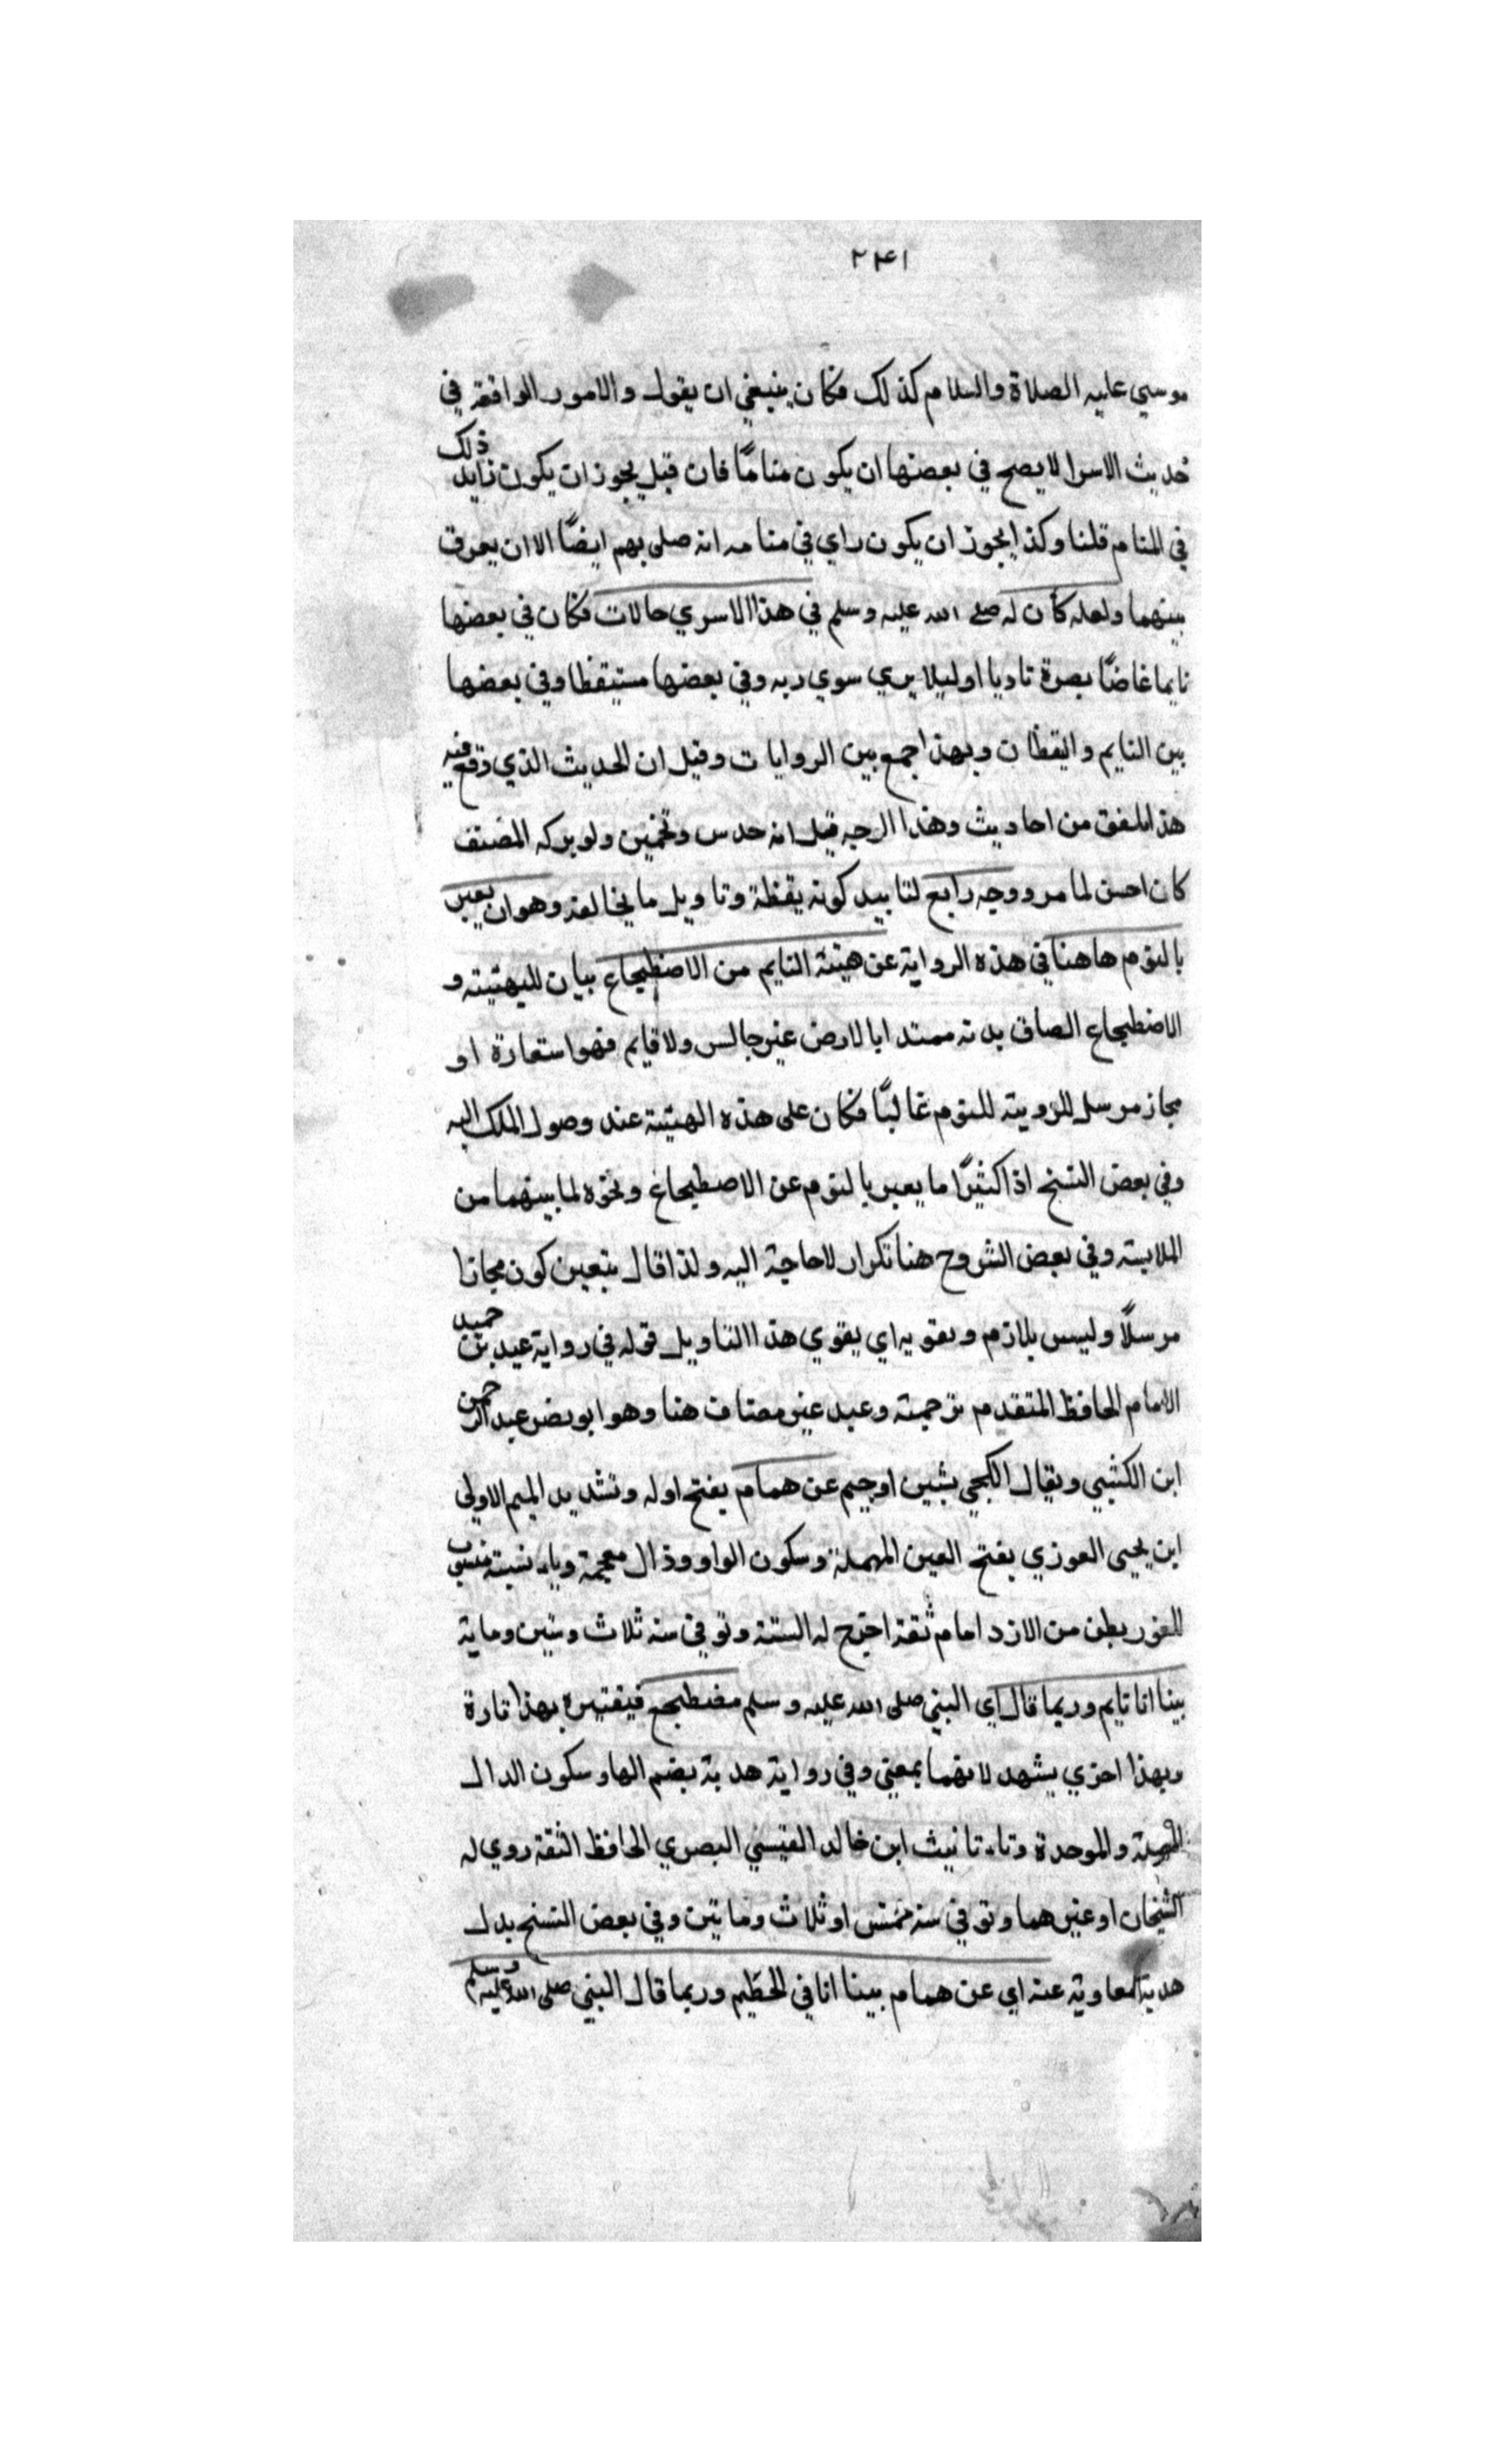 ٢٣١
موسي عليه الصلاة والسلام كذلك فكان ينبغي ان يقول والامور الواقعة في
حديث الاسرا لا يصح في بعضها ان يكون مناما فان قيل يجوز ان يكون ذلك
في المنام قلنا وكذا يجوز ان يكون راي في منامه انه صلى بهم ايضًا الا ان يعرف
بينهما ولعله كان له صلى الله عليه وسلم في هذا الاسري حالات فكان في بعضها
نايما غاضًا بصرة تادبا اوليلا يري سوي ربه وفي بعضها مستيقظا وفي بعضها
بين النايم واليقظان وبهذا جمع بين الروايات وقيل ان الحديث الذي وقع فيه
هذا ملفق من احاديث وهذا الوجه قيل انه حدس وتخمين ولو تركه المصنف
كان احسن لما مر ووجه رابع لتاييد كونه يقظة وتاويل ما يخالفه وهو ان يعبر
بالنوم هاهنا في هذه الرواية عن هيئة النايم من الاضطجاع بيان للهيئة و
الاضطجاع الصاق بدنه ممتدا بالارض غير جالس ولا قايم فهو استعارة او
مجاز مرسل للزومية للنوم غالبًا فكان على هذه الهيئة عند وصول الملك اليه
وفي بعض النسخ اذ اكثيرًا ما يعبر بالنوم عن الاضطجاع ونحوه لما بينهما من
الملابسة وفي بعض الشروح هنا تكرار لا حاجة اليه ولذا قال يتعين كون مجازا
مرسلًا وليس بلازم ويقويه اي يقوي هذا التاويل قوله في رواية عبد بن حميد
الامام الحافظ المتقدم ترجمته وعبد غير مضاف هنا وهو ابو نصر عبد الرحمن
ابن الكشي ويقال الكجي بشين او جيم عن همام بفتح اوله وتشديد الميم الاولى
ابن يحيى العوذي بفتح العين المهملة وسكون الواو وذال معجمة وياء نسبة منسوب
للعوذ بطن من الازد امام ثقة اخرج له الستة وتوفي سنه ثلاث وستين وماية
بينا انا نايم وربما قال اي النبي صلى الله عليه وسلم مضطجع فيعتبره بهذا تارة
وبهذا اخري يشهد لانهما بمعني وفي رواية هدبة بضم الها وسكون الدال
المهملة والموحدة وتاء تانيث ابن خالد القيسي البصري الحافظ الثقة روي له
الشيخان او غيرهما وتوفي سنه خمس او ثلاث ومايتين وفي بعض النسخ بدل
هدبة معاوية عنه اي عن همام بينا انا في الحطيم وربما قال النبي صلى الله عليه وسلم